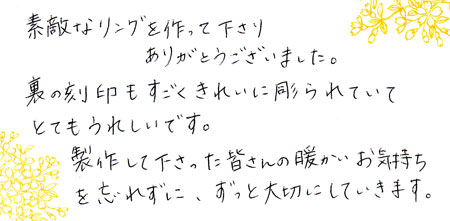 素敵なリングを作って下さり
ありがとうございました。
裏の刻印もすごくきれいに彫られていて
とてもうれしいです。
製作して下さった皆さんの暖かいお気持ち
を忘れずに、ずっと大切にしていきます。